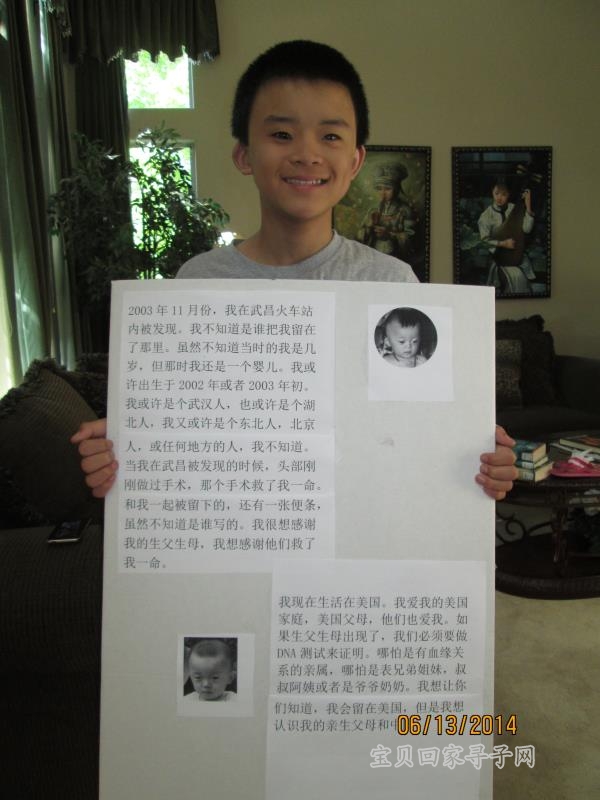 2003 年 11 月份，我在武昌火车站
内被发现。我不知道是谁把我留在
了那里。虽然不知道当时的我是几
岁，但那时我还是一个婴儿。我或
许出生于 2002 年或者 2003 年初。
我或许是个武汉人，也或许是个湖
北人，我又或许是个东北人，北京
人，或任何地方的人，我不知道。
当我在武昌被发现的时候，头部刚
刚做过手术，那个手术救了我一命。
和我一起被留下的，还有一张便条，
虽然不知道是谁写的。我很想感谢
我的生父生母，我想感谢他们救了
我一命。
我现在生活在美国。我爱我的美国
家庭，美国父母，他们也爱我。如
果生父生母出现了，我们必须要做
DNA 测试来证明。哪怕是有血缘关
系的亲属，哪怕是表兄弟姐妹，叔
叔阿姨或者是爷爷奶奶。我想让你
们知道，我会留在美国，但是我想
认识我的亲生父母和
06/13/2014
宝贝回家寻子网